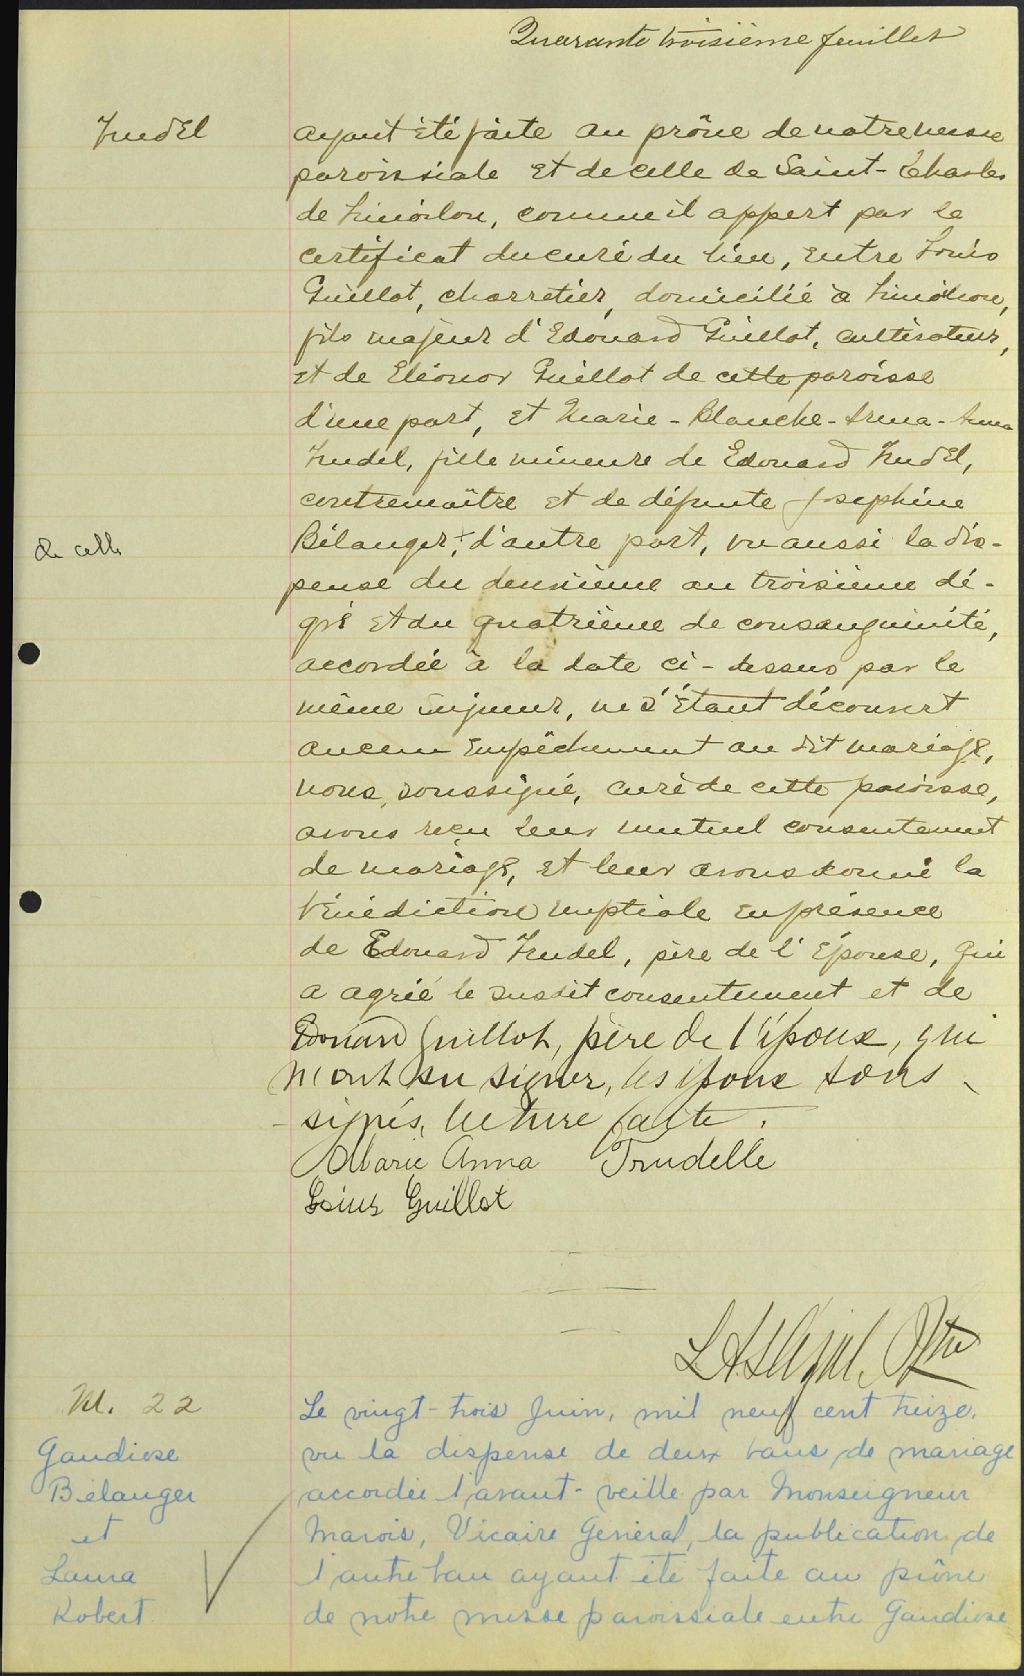 Quarante troisième feuillet
Trudel
ayant été faite au prône de notre messe
paroissiale et de celle de Saint-Charles
de Limoilou, comme il appert par le
certificat du curé du lieu, entre Louis
Guillot, charretier, domicilié à Limoilou,
fils majeur d'Edouard Guillot, cultivateur,
et de Eléonor Guillot de cette paroisse
d'une part, et Marie-Blanche-Irma-Anna
Trudel, fille mineure de Edouard Trudel,
contremaître et de défunte Joséphine
de celle
Bélanger,+ d'autre part, vu aussi la dis-
pense du deuxième au troisième dé-
gré et du quatrième de consanguinité,
accordée à la date ci-dessus par le
même Seigneur, ne s'étant découvert
aucun empêchement au dit mariage,
nous, soussigné, curé de cette paroisse,
avons reçu leur mutuel consentement
de mariage, et leur avons donné la
bénédiction nuptiale en présence
de Edouard Trudel, père de l'épouse, qui
a agréé le susdit consentement et de
Edouard Guillot, père de l'époux, qui
n'ont su signer, les époux sous-
signés, lecture faite.
Marie Anna Trudelle
Louis Guillot
Ptre
M. 22
Gaudiose
Bélanger
et
Laura
Robert
Le vingt-trois Juin, mil neuf cent treize,
vu la dispense de deux bans de mariage
accordée l'avant-veille par Monseigneur
Marois, Vicaire Général, la publication de
l'autre ban ayant été faite au prône
de notre messe paroissiale entre Gaudiose